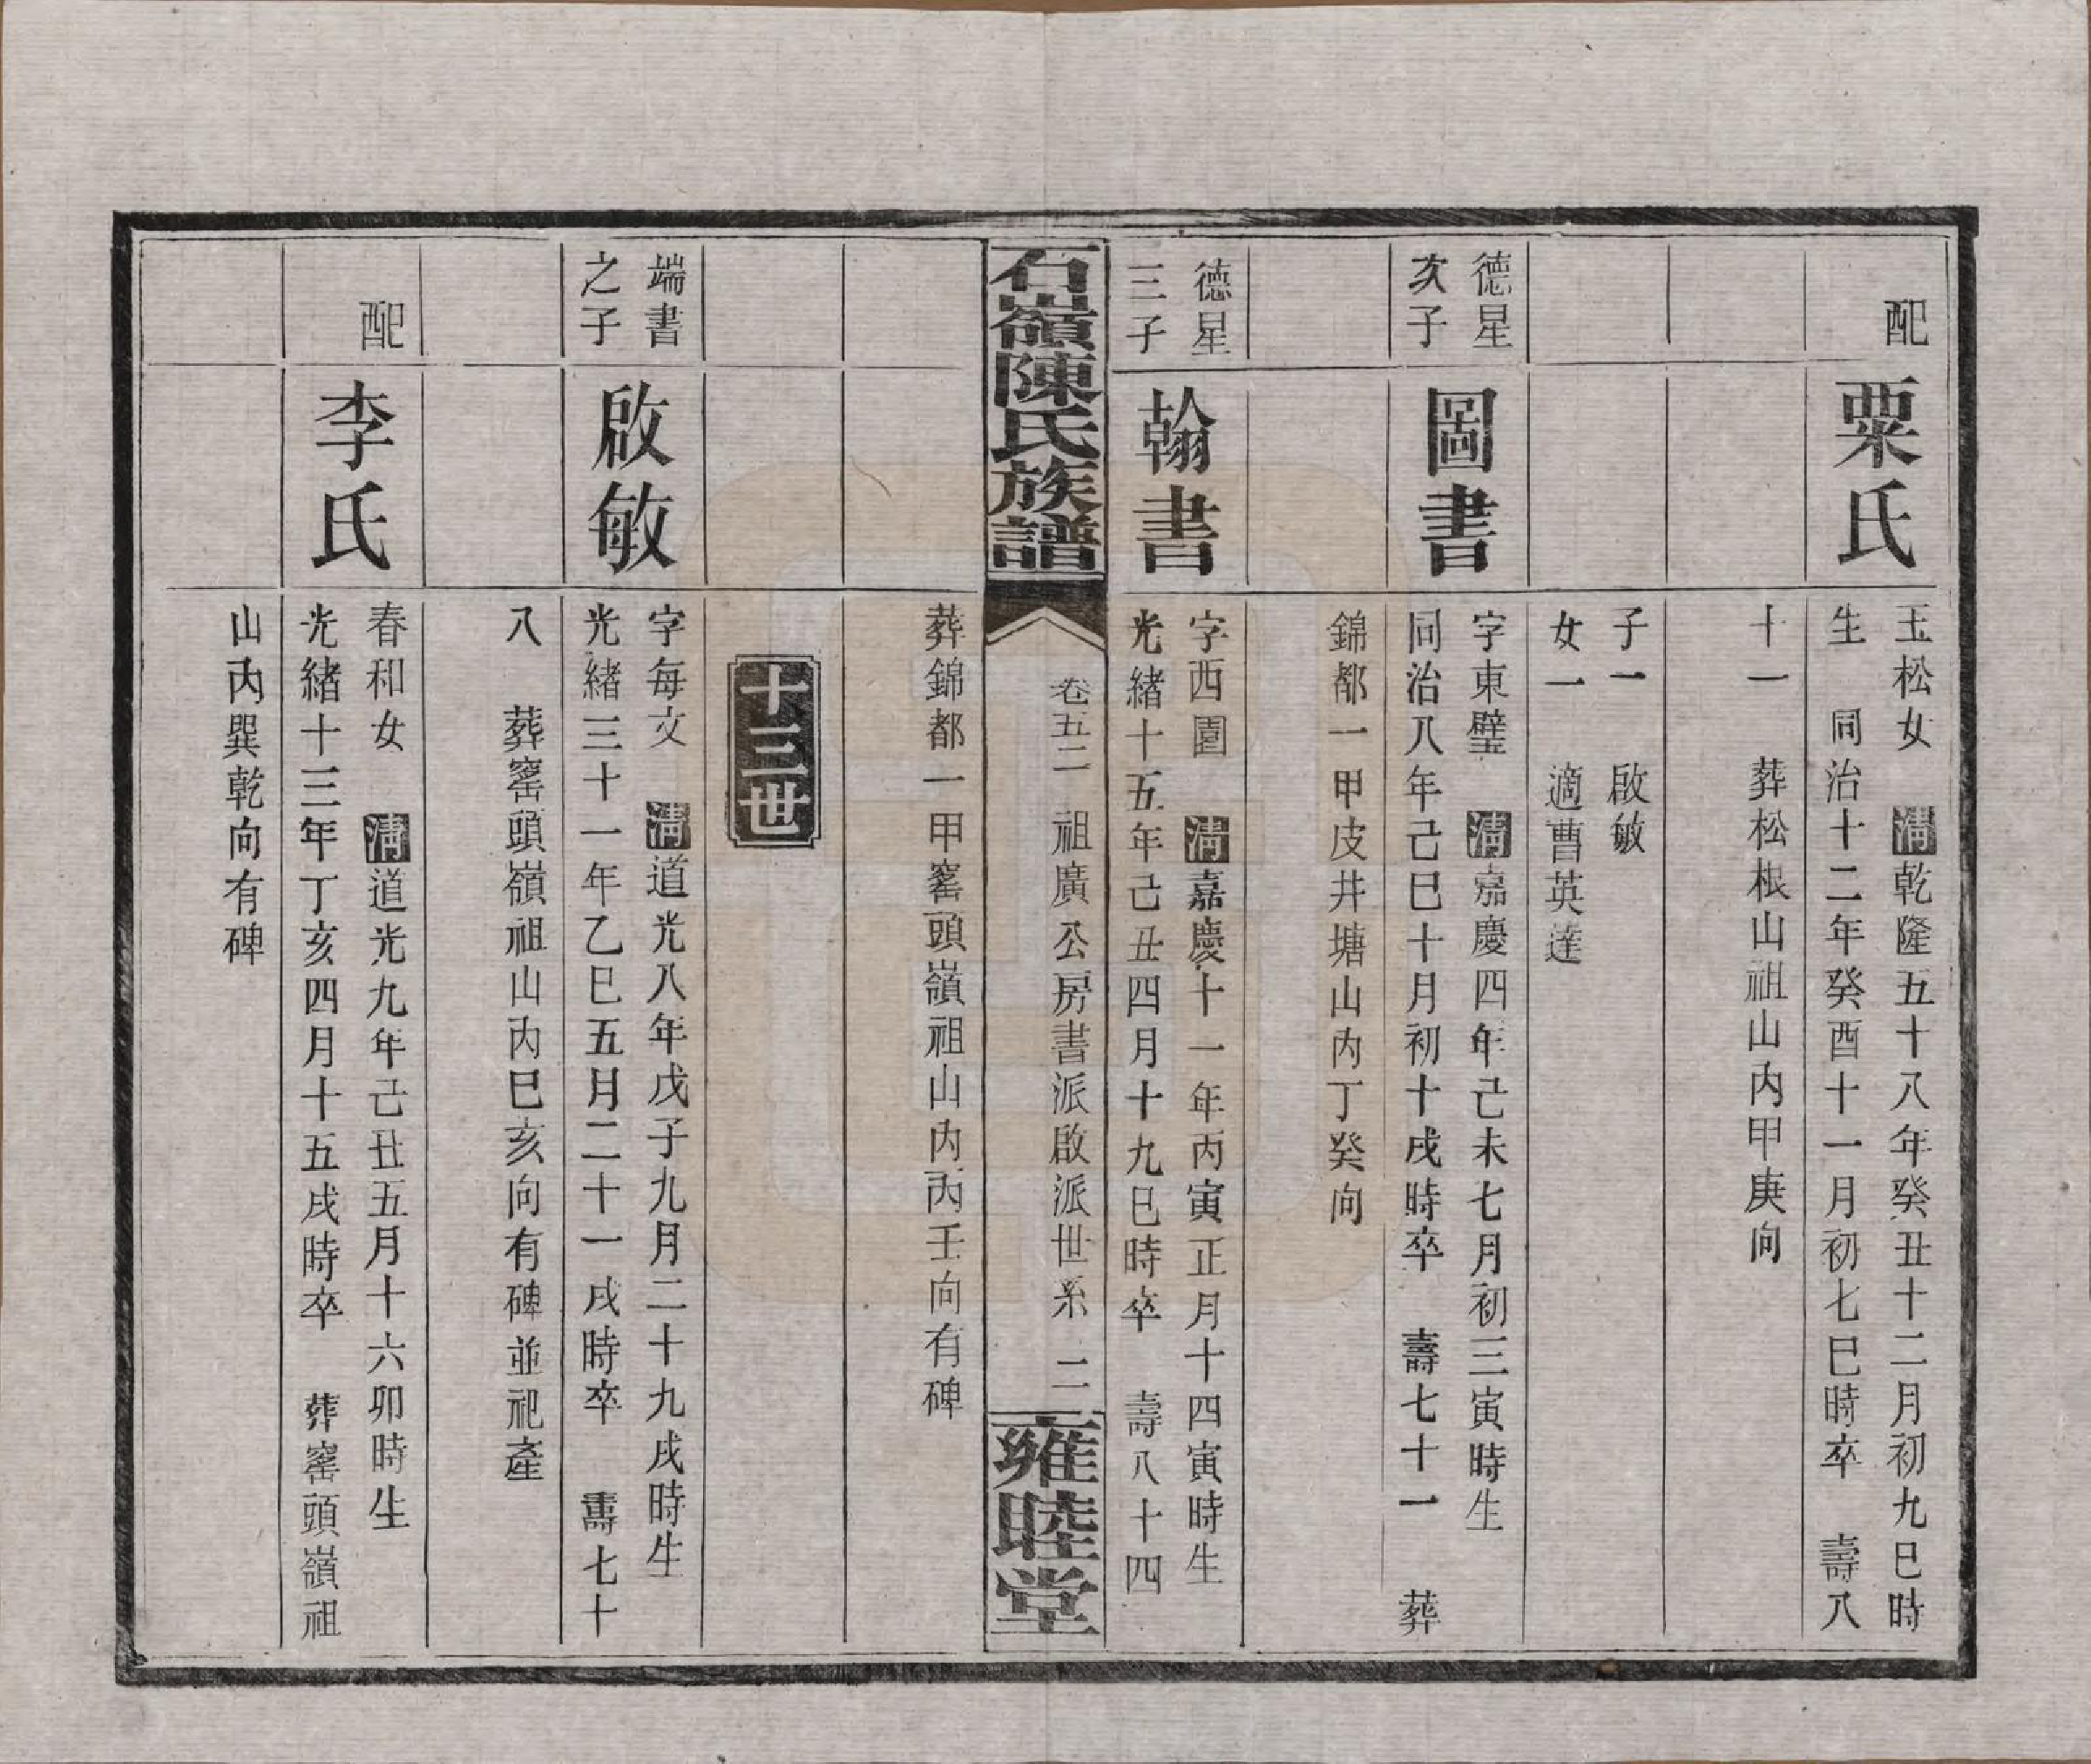 配
粟氏
玉松女　清乾隆五十八年癸丑十二月初九巳時
生　同治十二年癸酉十一月初七巳時卒　壽八
十一　葬松根山祖山內甲庚向
子一　啟敏
女一　適曹英達
德星
次子
圖書
字東壁　清嘉慶四年己未七月初三寅時生
同治八年己巳十月初十戌時卒　壽七十一　葬
錦都一甲皮井塘山內丁癸向
德星
三子
翰書
字西園　清嘉慶十一年丙寅正月十四寅時生
光緒十五年己丑四月十九巳時卒　壽八十四
石嶺陳氏族譜
卷五二　祖廣公房書派啟派世系　二
雍睦堂
葬錦都一甲窰頭嶺祖山內丙壬向有碑
十三世
端書
之子
啟敏
字每文　清道光八年戊子九月二十九戌時生
光緒三十一年乙巳五月二十一戌時卒　壽七十
八　葬窰頭嶺祖山內巳亥向有碑並祀產
配
李氏
春和女　清道光九年己丑五月十六卯時生
光緒十三年丁亥四月十五戌時卒　葬窰頭嶺祖
山內巽乾向有碑